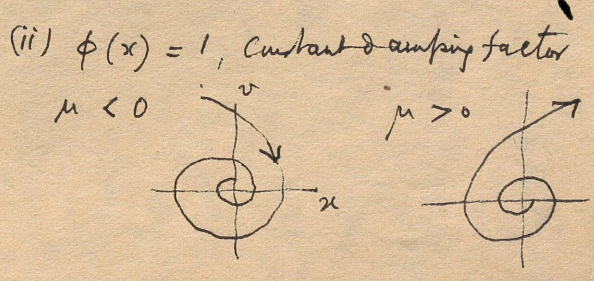 (ii) ϕ(x) = 1, Constant damping factor
μ < 0
v
μ > 0
x